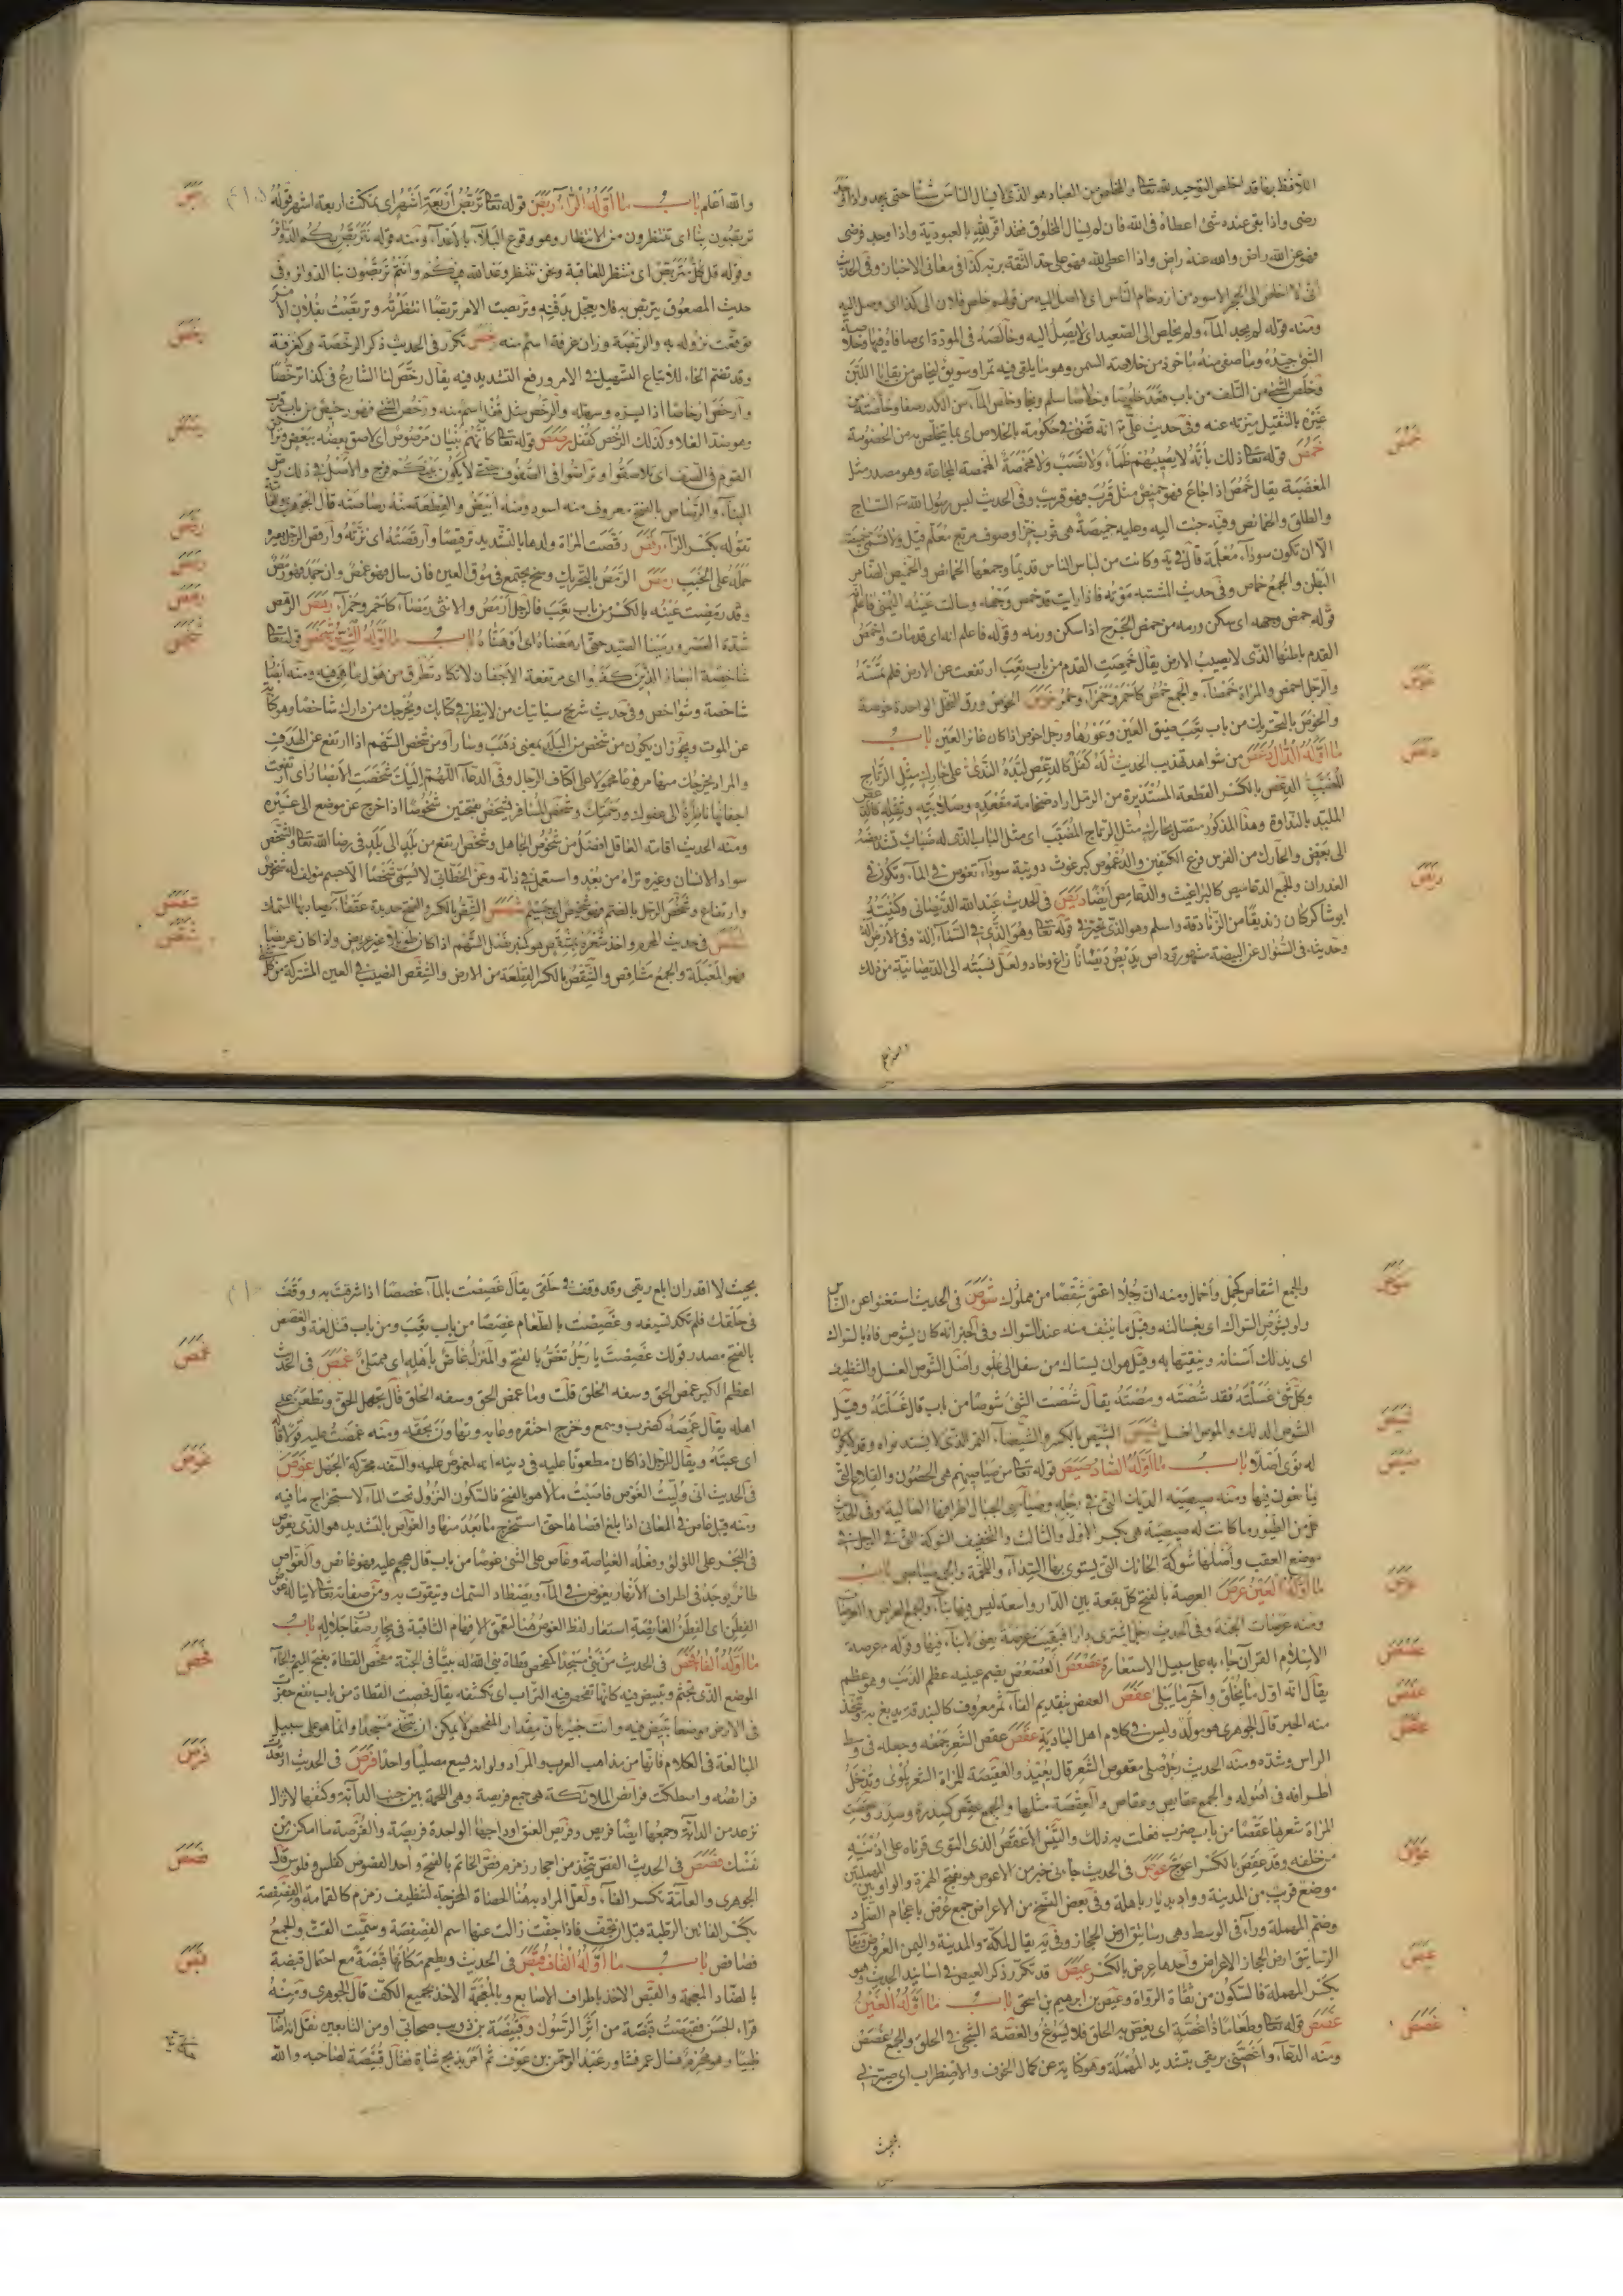 اللافظ بها قد اخلص التوحيد لله تعالى والمخلص من العباد هو الذى لا يسال الناس شيئا حتى يجد واذا وجد
رضى واذا بقى عنده شئ اعطاه فى الله فان لم يسال المخلوق فقد اقر لله بالعبودية واذا وجد فرضى
فهو عن الله راض والله عنه راض واذا اعطى لله فهو على حد الثقة بربه كذا فى معانى الاخبار وفى الحديث
انى لا اخلص الى الحجر الاسود من ازدحام الناس اى لا اصل اليه من قولهم خلص فلان الى كذا اى وصل اليه
ومنه قوله لم يجد الماء ولم يخلص الى الصعيد اى لا يصل اليه وخالصه فى المودة اى صافاه فيها
الشئ جيده وما صفى منه ماخوذ من خلاصة السمن وهو ما يلقى فيه تمر او سويق ليخلص من بقايا اللبن
وخلص الشئ من التلف من باب قعد خلوصا وخلاصا سلم ونجا وخلص الماء من الكدر صفا وخلصته من
غيره بالتثقيل ميزته عنه وفى حديث على انه قضى فى حكومة بالخلاص اى بما يتخلص به من الخصومة
خمص قوله تعالى ذلك بانه لا يصيبهم ظمأ ولا نصب ولا مخمصة المخمصة المجاعة وهو مصدر مثل
المغضبة يقال خمص اذا جاع فهو خميص مثل قرب فهو قريب وفى الحديث لبس رسول الله الساج
والطاق والخمائص وفيه جئت اليه وعليه خميصة هى ثوب خز او صوف مربع معلم قيل ولا تسمى خميصة
الا ان تكون سوداء معلمة قال فى يه وكانت من لباس الناس قديما وجمعها الخمائص والخميص الضامر
البطن والجمع خماص وفى حديث المشتبه موته فاذا رايت قد خمص وجهه وسالت عينه اليمنى فاعلم
قوله خمص وجهه اى سكن ورمه من خمص الجرح اذا سكن ورمه وقوله فاعلم انه اى قد مات واخمص
القدم باطنها الذى لا يصيب الارض يقال خمصت القدم من باب تعب ارتفعت عن الارض فلم تمسه
والرجل اخمص والمراة خمصاء والجمع خمص كاحمر وحمراء وحمر خوص الخوص ورق النخل الواحدة خوصة
والخوص بالتحريك من باب تعب ضيق العين وغورها ورجل اخوص اذا كان غائر العين باب
ما اوله الدال دعص من شواهد تهذيب الحديث له كفل كالدعص لبده الندى على حارك مثل الرتاج
المضبب الدعص بالكسر القطعة المستديرة من الرمل اراد ضخامة مقعده وصلابته وثقله كالدعص
الملبد بالنداوة وهذا المذكور متصل بحارك مثل الرتاج المضبب اى مثل الباب الذى له ضباب تشد بعضه
الى بعض والحارك من الفرس فرع الكتفين والدعموص كبرغوث دويبة سوداء تغوص فى الماء وتكون فى
الغدران والجمع الدعاميص كالبراغيث والدعامص ايضا ديص فى الحديث عبد الله الديصانى وكنيته
ابو شاكر كان زنديقا من الزنادقة واسلم وهو الذى تحير فى قوله تعالى وهو الذى فى السماء اله وفى الارض اله
وحديثه فى السؤال عن البيضة مشهور وداص يديص ديصانا زاغ وحاد ولعل نسبته الى الديصانية من ذلك
والله اعلم باب ما اوله الراء ربص قوله تعالى تربص اربعة اشهر اى تمكث اربعة اشهر قوله
تربصون بنا اى تنتظرون من الانتظار وهو وقوع البلاء بالاعداء ومنه قوله نتربص بكم الدوائر
وقوله قل كل متربص اى منتظر للعاقبة ونحن ننتظر وعد الله فيكم وانتم تربصون بنا الدوائر وفى
حديث المصعوق يتربص به فلا يعجل بدفنه وتربصت الامر تربصا انتظرته وتربصت بفلان الامر
توقعت نزوله به والربصة وزان غرفة اسم منه رخص تكرر فى الحديث ذكر الرخصة هى كغرفة
وقد تضم الخاء للاتباع التسهيل فى الامر ورفع التشديد فيه يقال رخص لنا الشارع فى كذا ترخيصا
وارخص ارخاصا اذا يسره وسهله والرخص مثل قفل اسم منه ورخص الشئ فهو رخيص من باب قرب
وهو ضد الغلا وكذلك الرخص كقفل رصص قوله تعالى كانهم بنيان مرصوص اى لاصق بعضه ببعض وتراص
القوم فى الصف اى تلاصقوا وتراصوا فى الصفوف حتى لا يكون بينكم فرج والاصل فى ذلك رص
البناء والرصاص بالفتح معروف منه اسود ومنه ابيض والقطعة منه رصاصة قال الجوهرى
تقوله بكسر الراء رقص رقصت المراة ولدها بالتشديد ترقيصا وارقصته اى نزته وارقص الرجل بعيره
حمله على الخبب رمص الرمص بالتحريك وسخ يجتمع فى موق العين فان سال فهو غمص وان جمد فهو رمص
وقد رمصت عينه بالكسر من باب تعب فالرجل ارمص والانثى رمصاء كاحمر وحمراء رهص الرهص
شدة العصر ورمينا الصيد حتى ارهصناه اى اوهناه باب ما اوله الشين شخص قوله تعالى
شاخصة ابصار الذين كفروا اى مرتفعة الاجفان لا تكاد تطرق من هول ما هى فيه ومنه ابصار
شاخصة وشواخص وفى حديث شريح سياتيك من لا ينظر فى كتابك ويخرجك من دارك شاخصا وهو كناية
عن الموت ويجوز ان يكون من شخص من البلد بمعنى ذهب وسار او من شخص السهم اذا ارتفع عن الهدف
والمراد يخرجك منها مرفوعا محمولا على اكتاف الرجال وفى الدعاء اللهم اليك شخصت الابصار اى ارتفعت
اجفانها ناظرة الى عفوك ورحمتك وشخص المسافر يشخص بفتحتين شخوصا اذا خرج عن موضع الى غيره
ومنه الحديث اقامة العاقل افضل من شخوص الجاهل وشخص ارتفع من بلد الى بلد فى رضا الله تعالى والشخص
سواد الانسان وغيره تراه من بعد واستعمل فى ذاته وعن الخطابى لا يسمى شخصا الا جسم مؤلف له شخوص
وارتفاع وشخص الرجل بالضم فهو شخيص اى جسيم شصص الشص بالكسر والفتح حديدة عقفاء يصاد بها السمك
شقص فى حديث المحرم واخذ شعره بمشقص هو كمنبر نصل السهم اذا كان طويلا غير عريض واذا كان عريضا
فهو المعبلة والجمع مشاقص والشقص بالكسر القطعة من الارض والشقص النصيب فى العين المشتركة من كل
والجمع اشقاص كحمل واحمال ومنه ان رجلا اعتق شقصا من مملوك شوص فى الحديث استغنوا عن الناس
ولو بشوص السواك اى بغسالته وقيل ما يتفتت منه عند السواك وفى الخبر انه كان يشوص فاه بالسواك
اى يدلك اسنانه وينقيها به وقيل هو ان يستاك من سفل الى علو واصل الشوص الغسل والتنظيف
وكل شئ غسلته فقد شصته ومصته يقال شصت الشئ شوصا من باب قال غسلته وقيل
الشوص الدلك والموص الغسل شيص الشيص بالكسر والشيصاء التمر الذى لا يشتد نواه وقد لا يكون
له نوى اصلا باب ما اوله الصاد صيص قوله تعالى من صياصيهم هى الحصون والقلاع التى
يتحصون فيها ومنه صيصية الديك التى فى رجله وصياصى الجبال اطرافها العالية وفى الحديث
كل من الطيور ما كانت له صيصية هى بكسر الاول والثالث والتخفيف الشوكة التى فى الرجل فى
موضع العقب واصلها شوكة الحائك التى يستوى بها السداء واللحمة والجمع صياصى باب
ما اوله العين عرص العرصة بالفتح كل بقعة بين الدار واسعة ليس فيها بناء والجمع العراص والعرصات
ومنه عرصات الجنة وفى الحديث رجل اشترى دارا فبقيت عرصة يعنى لا بناء فيها وقوله عرصة
الاسلام القرآن جاء به على سبيل الاستعارة عصعص العصعص بضم عينيه عظم الذنب وهو عظم
يقال انه اول ما يخلق وآخر ما يبلى عفص العفص بتقديم الفاء ثمر معروف كالبندقة يدبغ به ويتخذ
منه الحبر قال الجوهرى هو مولد وليس فى كلام اهل البادية عقص عقص الشعر جمعه وجعله فى وسط
الراس وشده ومنه الحديث رجل صلى معقوص الشعر قال يعيد والعقيصة للمراة الشعر يلوى وتدخل
اطرافه فى اصوله والجمع عقايص وعقاص والعقصة مثلها والجمع عقص كسدرة وسدر وعقصت
المراة شعرها عقصا من باب ضرب فعلت به ذلك والتيس الاعقص الذى التوى قرناه على اذنيه
من خلفه وقد عقص بالكسر اعوج عوص فى الحديث جاءنى خبر من الاعوص هو بفتح الهمزة والواو بين المهملتين
موضع قريب من المدينة وواد بديار باهلة وفى بعض النسخ من الاعراض جمع عرض باعجام الضاد
وضم المهملة وراء فى الوسط وهى رساتيق ارض الحجاز وفى يه يقال لمكة والمدينة واليمن العروض
الرساتيق ارض الحجاز الاعراض واحدها عرض بالكسر عيص قد تكرر ذكر العيص فى اسانيد الحديث وهو
بكسر المهملة فالسكون من ثقاة الرواة وعيص بن ابرهيم بن اسحق باب ما اوله الغين
غصص قوله تعالى وطعاما ذا غصة اى يغص به الحلق فلا يسوغ والغصة الشجى فى الحلق والجمع غصص
ومنه الدعاء واغصنى بريقى بتشديد المهملة وهو كناية عن كمال الخوف والاضطراب اى صيرنى
بحيث لا اقدر ان ابلع ريقى وقد وقف فى حلقى يقال غصصت بالماء غصصا اذا شرقت به ووقف
فى حلقك فلم تكد تسيغه وغصصت بالطعام غصصا من باب تعب ومن باب قتل لغة والغصص
بالفتح مصدر قولك غصصت يا رجل تغص بالفتح والمنزل غاص باهله اى ممتلئ غمص فى الحديث
اعظم الكبر غمص الحق وسفه الخلق قلت وما غمص الحق وسفه الخلق قال تجهل الحق وتطعن على
اهله يقال غمصه كضرب وسمع وخرج احتقره وعابه وتهاون بحقه ومنه غمصت عليه قولا قاله
اى عبته ويقال للرجل اذا كان مطعونا عليه فى دينه انه لمغموص عليه والسفه محركة الجهل غوص
فى الحديث انى وليت الغوص فاصبت مالا هو بالفتح فالسكون النزول تحت الماء لاستخراج ما فيه
ومنه قيل غاص فى المعانى اذا بلغ اقصاها حتى استخرج ما بعد منها والغواص بالتشديد هو الذى يغوص
فى البحر على اللؤلؤ وفعله الغياصة وغاص على الشئ غوصا من باب قال هجم عليه فهو غائص والغواص
طائر يوجد فى اطراف الانهار يغوص فى الماء ويصطاد السمك ويتقوت به ومن صفاته تعالى لا يناله غوص
الفطن اى الفطن الغايصة استعار لفظ الغوص هنا لتعمق الافهام الثاقبة فى بحار صفات جلاله باب
ما اوله الفاء فحص فى الحديث من بنى مسجدا كمفحص قطاة بنى الله له بيتا فى الجنة مفحص القطاة بفتح الميم والحاء
الموضع الذى تجثم وتبيض فيه كانها تفحص فيه التراب اى تكشفه يقال فحصت القطاة من باب نفع حفرت
فى الارض موضعا تبيض فيه وانت خبير بان مقدار المفحص لا يمكن ان يتخذ مسجدا وانما هو على سبيل
المبالغة فى الكلام فانها من مذاهب العرب والمراد ولو انه يسع مصليا واحدا فرص فى الحديث ارتعدت
فرائصه واصطكت فرائص الملائكة هى جمع فريصة وهى اللحمة بين جنب الدابة وكتفها لا تزال
ترعد من الدابة وجمعها ايضا فريص وفريص العنق اوداجها الواحدة فريصة والفرصة ما امكن من
نفسك فصص فى الحديث الفص يتخذ من احجار زمزم فص الخاتم بالفتح واحد الفصوص كفلس وفلوس قال
الجوهرى والعامة بكسر الفاء ولعل المراد به هنا الحصاة المخرجة لتنظيف زمزم كالقمامة والفصفصة
بكسر الفائين الرطبة قبل ان تجف فاذا جفت زالت عنها اسم الفصفصة وسميت القت والجمع
فصافص باب ما اوله القاف قبص فى الحديث ويطعم مكانها قبصة مع احتمال قبضة
بالضاد المعجمة والقبص الاخذ باطراف الاصابع وبالمعجمة الاخذ بجميع الكف قال الجوهرى ومنه
قراء الحسن فقبصت قبصة من اثر الرسول وقبيصة بن ذويب صحابى او من التابعين نقل انه اصاب
ظبيا وهو محرم فسال عمر فشاور عبد الرحمن بن عوف ثم امره بذبح شاة فقال قبيصة لصاحبه والله